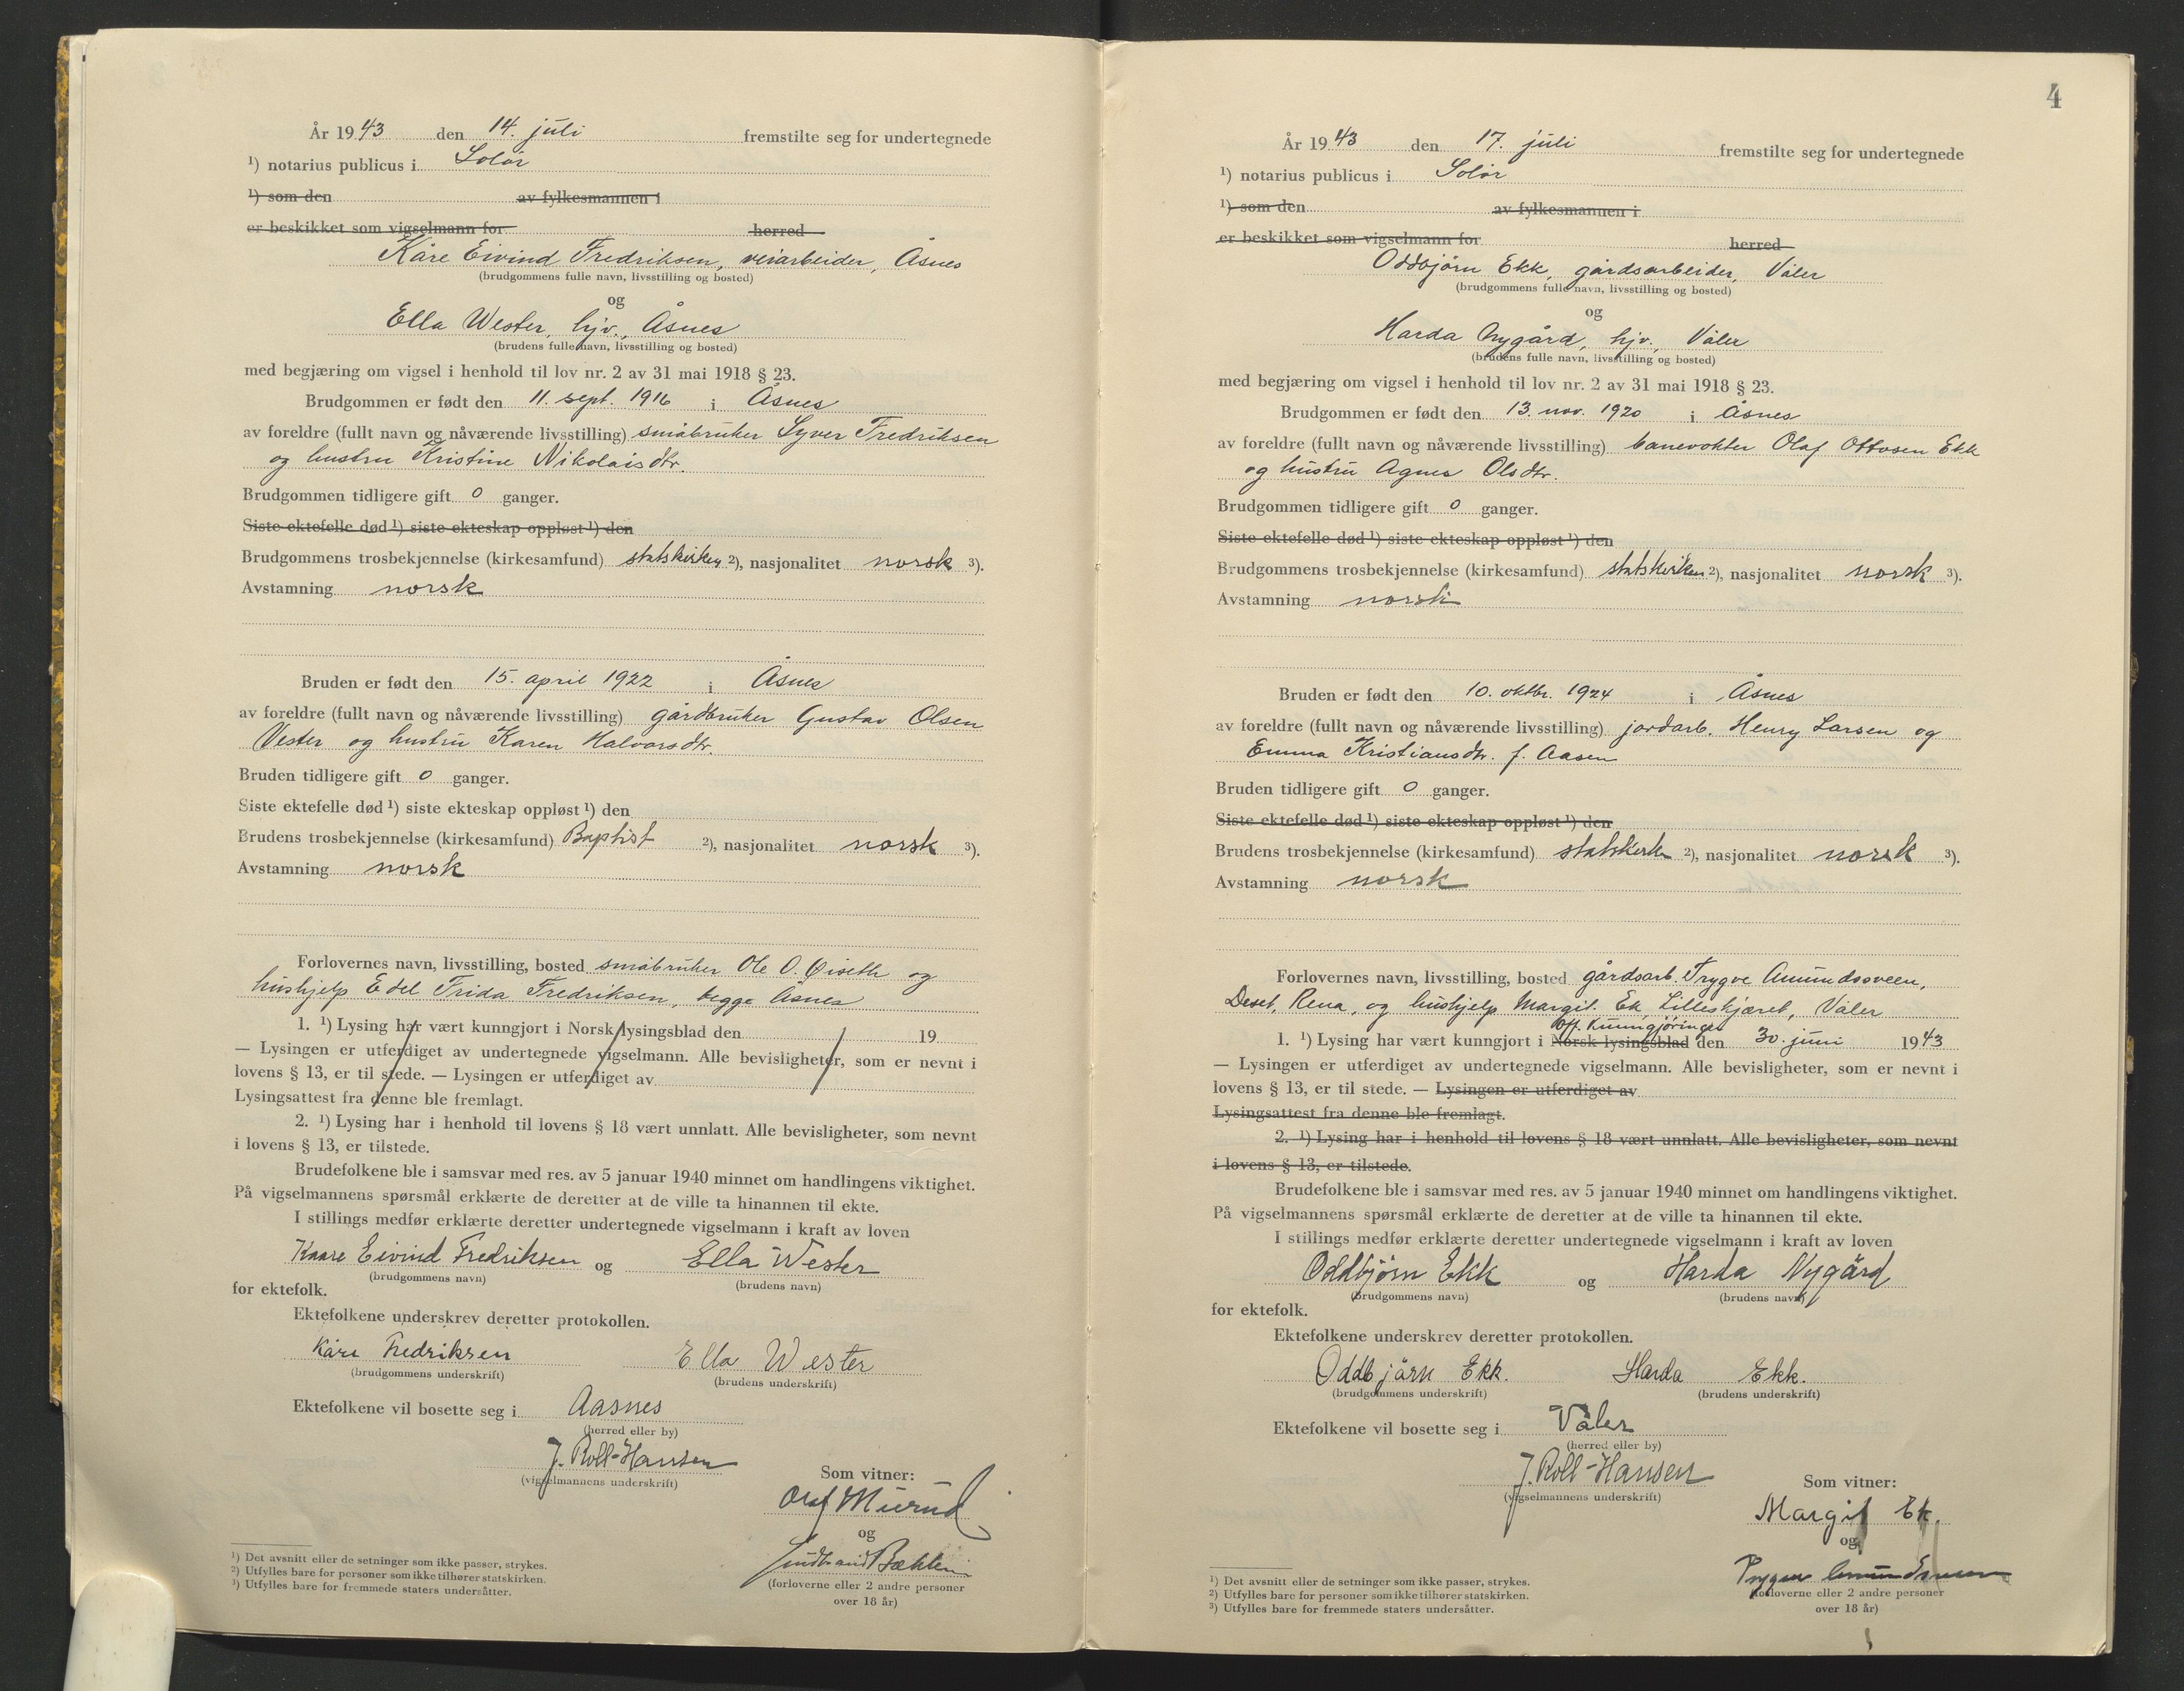 År 1943 den 14. juli fremstilte seg for undertegnede
¹) notarius publicus i Solør
¹) som den av fylkesmannen i
er beskikket som vigselmann for herred
Kåre Eivind Fredriksen, veiarbeider, Åsnes
(brudgommens fulle navn, livsstilling og bosted)
og
Ella Wester, hjv., Åsnes
(brudens fulle navn, livsstilling og bosted)
med begjæring om vigsel i henhold til lov nr. 2 av 31 mai 1918 § 23.
Brudgommen er født den 11. sept. 1916 i Åsnes
av foreldre (fullt navn og nåværende livsstilling) småbruker Syver Fredriksen
og hustru Kristine Nikolaisdtr.
Brudgommen tidligere gift 0 ganger.
Siste ektefelle død ¹) siste ekteskap oppløst ¹) den
Brudgommens trosbekjennelse (kirkesamfund) statskirken ²), nasjonalitet norsk ³).
Avstamning norsk
Bruden er født den 15. april 1922 i Åsnes
av foreldre (fullt navn og nåværende livsstilling) gårdbruker Gustav Olsen
Vester og hustru Karen Halvorsdtr.
Bruden tidligere gift 0 ganger.
Siste ektefelle død ¹) siste ekteskap oppløst ¹) den
Brudens trosbekjennelse (kirkesamfund) Baptist ²), nasjonalitet norsk ³).
Avstamning norsk
Forlovernes navn, livsstilling, bosted småbruker Ole O. Øiseth og
hushjelp Edel Frida Fredriksen, begge Åsnes
1. ¹) Lysing har vært kunngjort i Norsk lysingsblad den 19
— Lysingen er utferdiget av undertegnede vigselmann. Alle bevisligheter, som er nevnt i
lovens § 13, er til stede. — Lysingen er utferdiget av
Lysingsattest fra denne ble fremlagt.
2. ¹) Lysing har i henhold til lovens § 18 vært unnlatt. Alle bevisligheter, som nevnt
i lovens § 13, er tilstede.
Brudefolkene ble i samsvar med res. av 5 januar 1940 minnet om handlingens viktighet.
På vigselmannens spørsmål erklærte de deretter at de ville ta hinannen til ekte.
I stillings medfør erklærte deretter undertegnede vigselmann i kraft av loven
Kaare Eivind Fredriksen og Ella Wester
(brudgommens navn) (brudens navn)
for ektefolk.
Ektefolkene underskrev deretter protokollen.
Kåre Fredriksen Ella Wester
(brudgommens underskrift) (brudens underskrift)
Ektefolkene vil bosette seg i Aasnes
(herred eller by)
J. Roll-Hansen
(vigselmannens underskrift)
Som vitner:
Olaf Murud
og
(forloverne eller 2 andre personer
over 18 år)
¹) Det avsnitt eller de setninger som ikke passer, strykes.
²) Utfylles bare for personer som ikke tilhører statskirken.
³) Utfylles bare for fremmede staters undersåtter.
4
År 1943 den 17. juli fremstilte seg for undertegnede
¹) notarius publicus i Solør
¹) som den av fylkesmannen i
er beskikket som vigselmann for herred
Oddbjørn Ekk, gårdsarbeider, Våler
(brudgommens fulle navn, livsstilling og bosted)
og
Harda Nygård, hjv., Våler
(brudens fulle navn, livsstilling og bosted)
med begjæring om vigsel i henhold til lov nr. 2 av 31 mai 1918 § 23.
Brudgommen er født den 13. nov. 1920 i Åsnes
av foreldre (fullt navn og nåværende livsstilling) banevokter Olaf Ottosen Ekk
og hustru Agnes Olsdtr.
Brudgommen tidligere gift 0 ganger.
Siste ektefelle død ¹) siste ekteskap oppløst ¹) den
Brudgommens trosbekjennelse (kirkesamfund) statskirken ²), nasjonalitet norsk ³).
Avstamning norsk
Bruden er født den 10. oktbr. 1924 i Åsnes
av foreldre (fullt navn og nåværende livsstilling) jordarb. Henry Larsen og
Emma Kristiansdtr. f. Aasen
Bruden tidligere gift 0 ganger.
Siste ektefelle død ¹) siste ekteskap oppløst ¹) den
Brudens trosbekjennelse (kirkesamfund) statskirken ²), nasjonalitet norsk ³).
Avstamning norsk
Forlovernes navn, livsstilling, bosted gårdsarb. Trygve Amundsveen,
Deset, Rena, og hushjelp Margit Ek, Lilleskjæret, Våler
off. kunngjøringer
1. ¹) Lysing har vært kunngjort i Norsk lysingsblad den 30. juni 1943
— Lysingen er utferdiget av undertegnede vigselmann. Alle bevisligheter, som er nevnt i
lovens § 13, er til stede. — Lysingen er utferdiget av
Lysingsattest fra denne ble fremlagt.
2. ¹) Lysing har i henhold til lovens § 18 vært unnlatt. Alle bevisligheter, som nevnt
i lovens § 13, er tilstede.
Brudefolkene ble i samsvar med res. av 5 januar 1940 minnet om handlingens viktighet.
På vigselmannens spørsmål erklærte de deretter at de ville ta hinannen til ekte.
I stillings medfør erklærte deretter undertegnede vigselmann i kraft av loven
Oddbjørn Ekk og Harda Nygård
(brudgommens navn) (brudens navn)
for ektefolk.
Ektefolkene underskrev deretter protokollen.
Oddbjørn Ekk. Harda Ekk.
(brudgommens underskrift) (brudens underskrift)
Ektefolkene vil bosette seg i Våler
(herred eller by)
J. Roll-Hansen
(vigselmannens underskrift)
Som vitner:
Margit Ek.
og
Trygve Amundsveen
(forloverne eller 2 andre personer
over 18 år)
¹) Det avsnitt eller de setninger som ikke passer, strykes.
²) Utfylles bare for personer som ikke tilhører statskirken.
³) Utfylles bare for fremmede staters undersåtter.